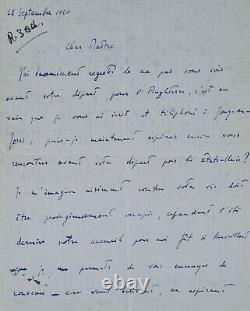 26 Septembre 1960
R. 30 d.
Cher Maître
J'ai énormément regretté de ne pas vous voir
avant votre départ pour l'Angleterre, c'est en
vain que je vous ai écrit et téléphoné à
Jouy, puis-je maintenant espérer vous
rencontrer avant votre départ pour les États-Unis?
Je m'imagine aisément combien votre vie doit
être prodigieusement occupée, cependant l'été
dernier votre accueil pour moi fût si
je me permets de vous
nouveau - en vous écrivant, en espérant